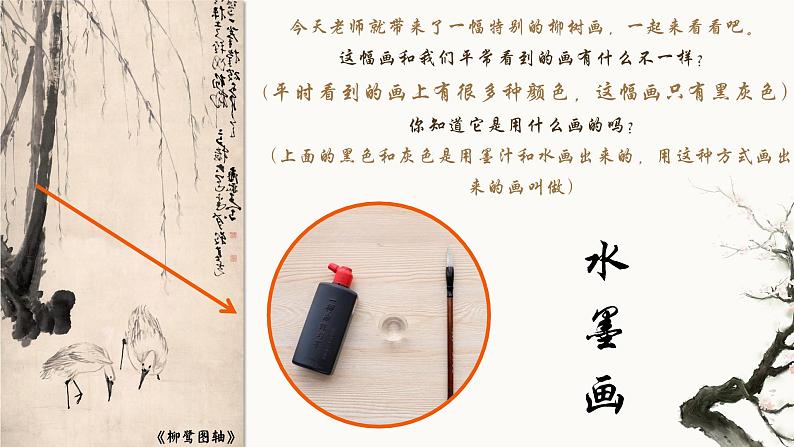 今天老师就带来了一幅特别的柳树画，一起来看看吧。
这幅画和我们平常看到的画有什么不一样？
（平时看到的画上有很多种颜色，这幅画只有黑灰色）
你知道它是用什么画的吗？
（上面的黑色和灰色是用墨汁和水画出来的，用这种方式画出
来的画叫做）
水墨画
《柳鹭图轴》